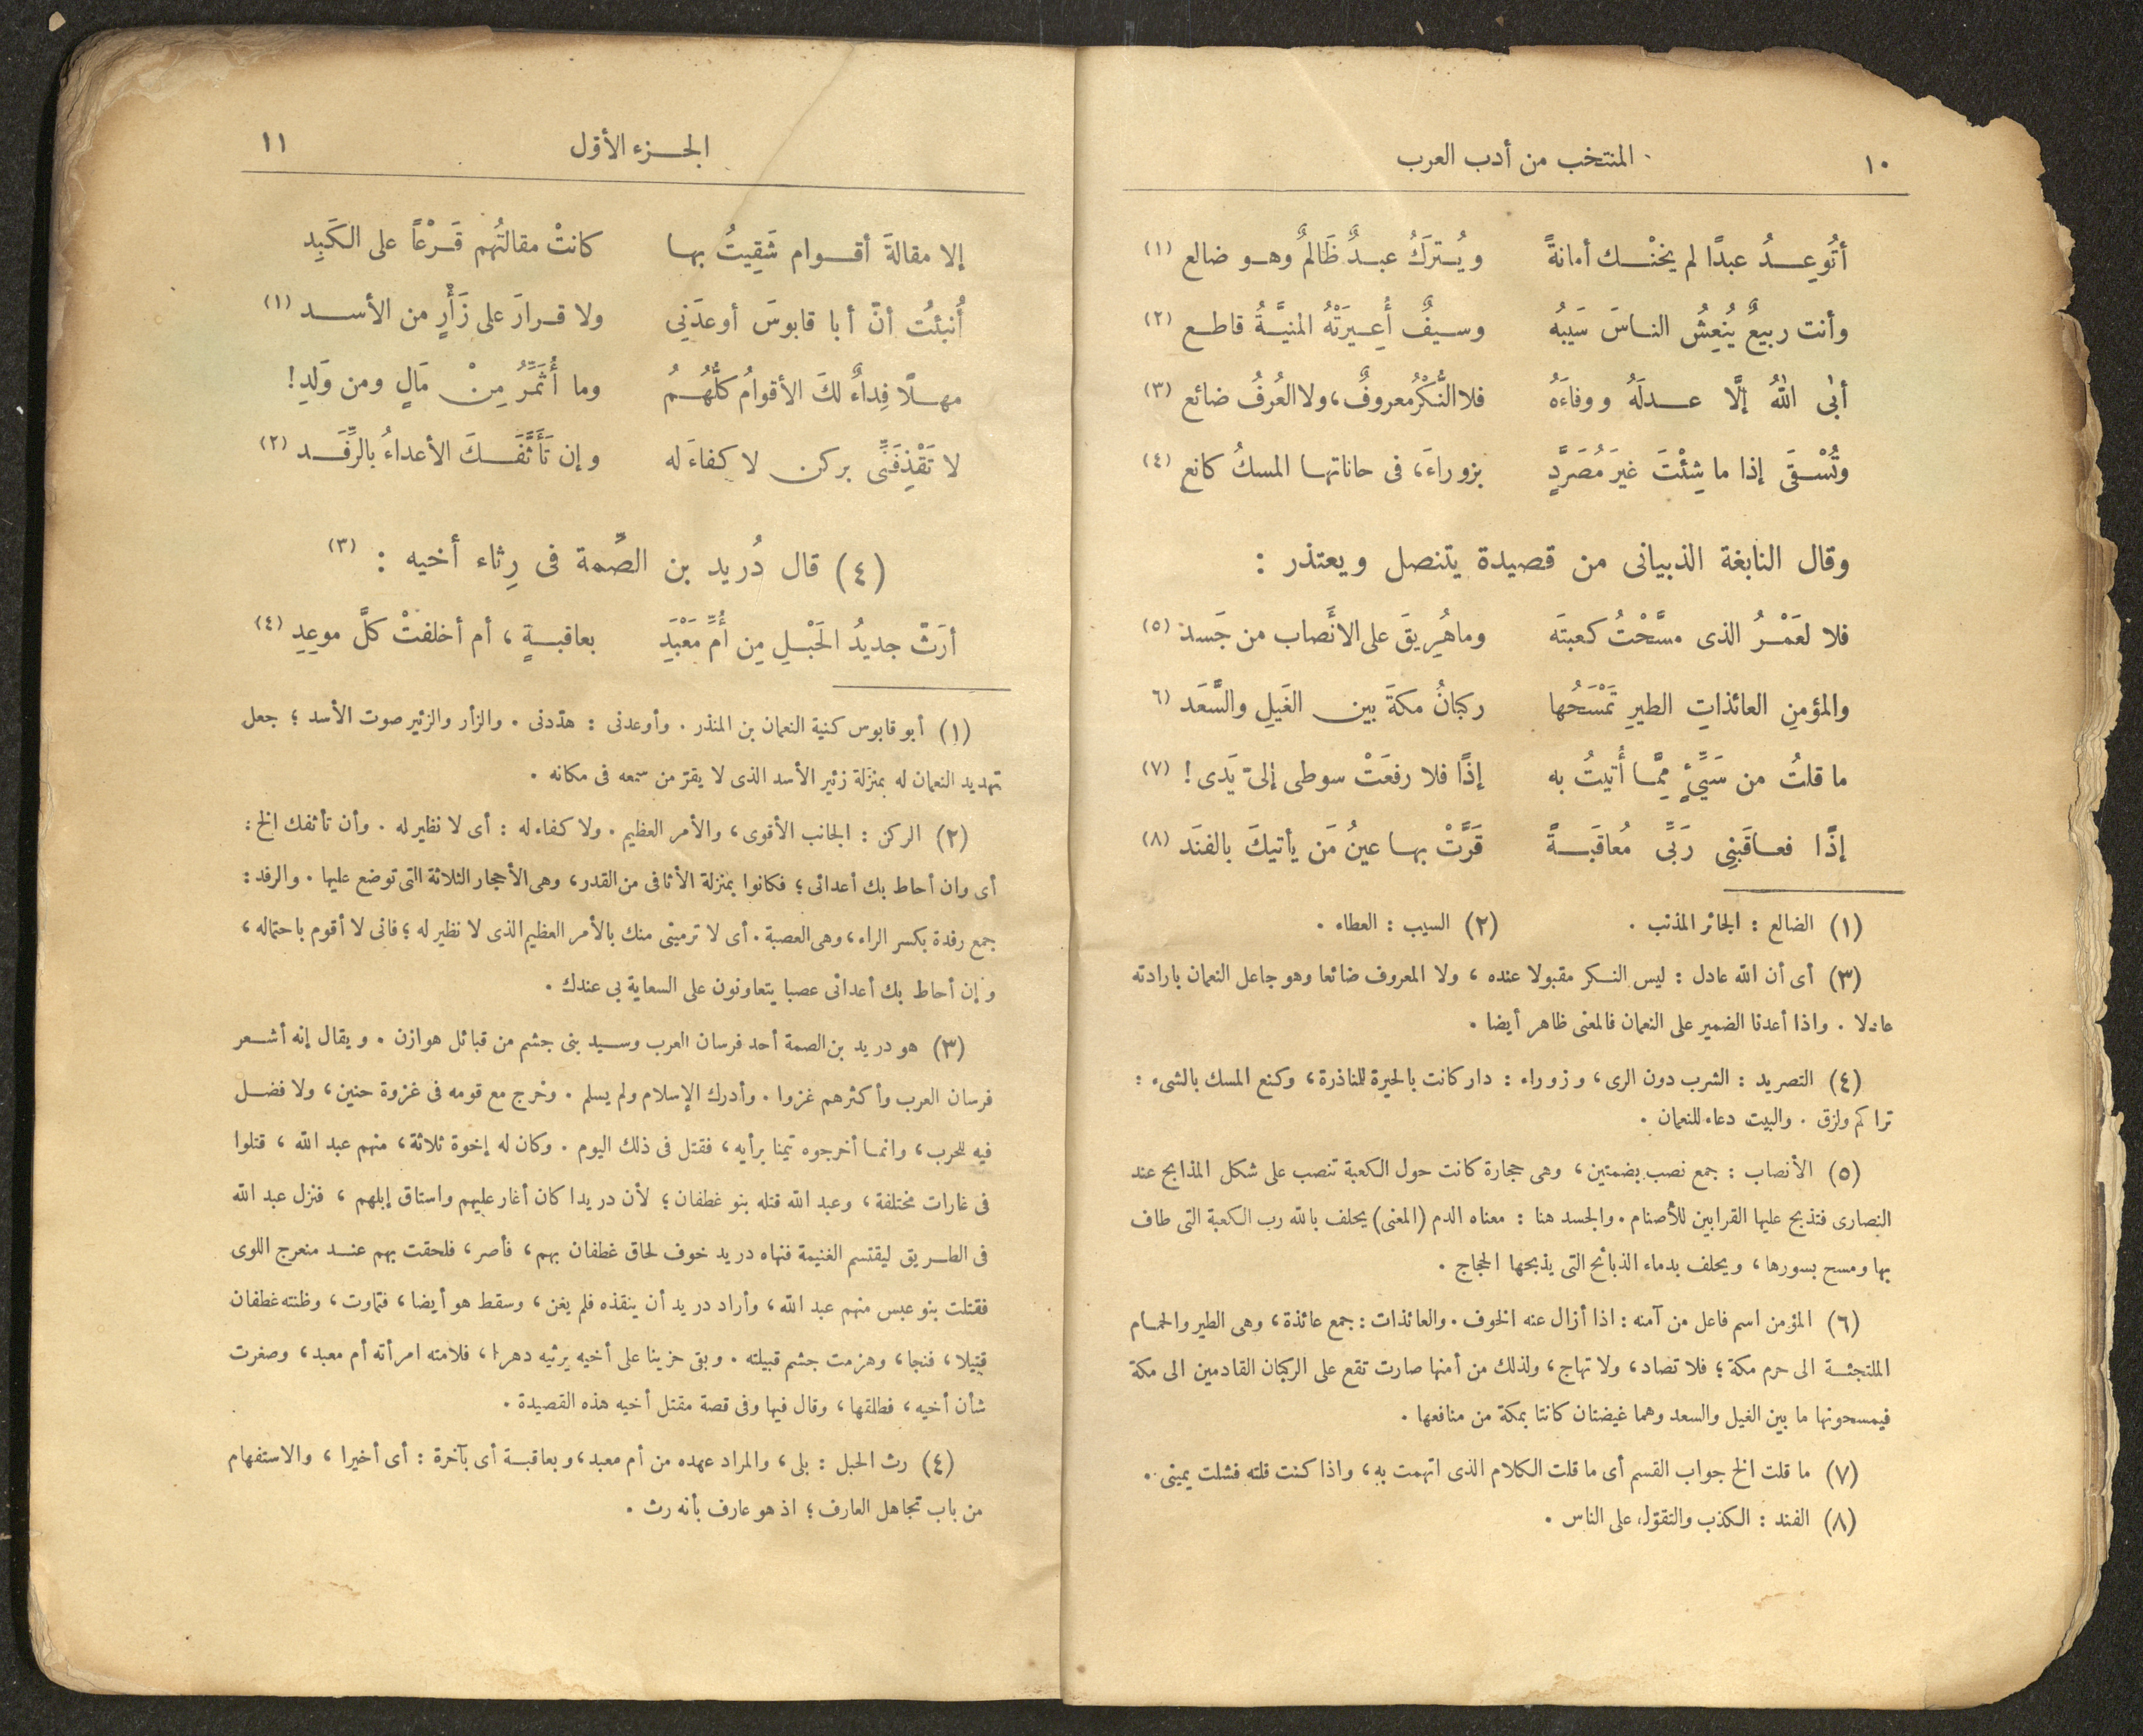 ١٠
المنتخب من أدب العرب
أتُوعِدُ عبدًا لم يخنْك أمانةً ويُترَكُ عبدٌ ظَالمٌ وهو ضالع (١)
وأنت ربيعٌ يُنْعِشُ الناسَ سَيبُه وسيفٌ أُعِيرَتْهُ المنيَّةُ قاطع (٢)
أبىٰ اللهُ إلَّا عدلَهُ ووفاءَهُ فلا النُّكْرُ معروفٌ، ولا العُرفُ ضائع (٣)
وتُسْقَى إذا ما شِئْتَ غيرَ مُصَرَّدٍ بزوراءَ، فى حاناتها المسكُ كانع (٤)
وقال النابغة الذبيانى من قصيدة يتنصل ويعتذر :
فلا لعَمْرُ الذى مسَّحْتُ كعبتَه وما هُرِيقَ على الانَصاب من جَسد (٥)
والمؤمنِ العائذاتِ الطيرِ تَمْسَحُها ركبانُ مكةَ بين الغَيلِ والسَّعَد (٦
ما قلتُ من سَيِّئٍ مِمَّا أُتيتُ به إذًا فلا رفعَتْ سوطى إلىّ يَدى ! (٧)
إذًا فعاقَبَنِى رَبِّى مُعاقَبَةً قَرَّتْ بها عينُ مَن يأتيكَ بالفنَد (٨)
(١) الضالع : الجائر المذنب . (٢) السيب : العطاء .
(٣) أى أن الله عادل : ليس النكر مقبولا عنده ، ولا المعروف ضائعا وهو جاعل النعمان بارادته
عادلا . واذا أعدنا الضمير على النعمان فالمعنى ظاهر أيضا .
(٤) التصريد : الشرب دون الرى ، وزوراء : دار كانت بالحيرة للمناذرة ، وكنع المسك بالشىء :
تراكم ولزق . والبيت دعاء للنعمان .
(٥) الأنصاب : جمع نصب بضمتين ، وهى حجارة كانت حول الكعبة تنصب على شكل المذابح عند
النصارى فتذبح عليها القرابين للأصنام . والجسد هنا : معناه الدم (المعنى) يحلف بالله رب الكعبة التى طاف
بها ومسح بسورها ، ويحلف بدماء الذبائح التى يذبحها الحجاج .
(٦) المؤمن اسم فاعل من آمنه : اذا أزال عنه الخوف . والعائذات : جمع عائذة ، وهى الطير والحمام
الملتجئة الى حرم مكة ؛ فلا تصاد ، ولا تهاج ، ولذلك من أمنها صارت تقع على الركبان القادمين الى مكة
فيمسحونها ما بين الغيل والسعد وهما غيضتان كانتا بمكة من منافعها .
(٧) ما قلت الخ جواب القسم أى ما قلت الكلام الذى اتهمت به ، واذا كنت قلته فشلت يمينى .
(٨) الفند : الكذب والتقوّل على الناس .
الجزء الأوّل
١١
إلا مقالةَ أقوام شَقِيتُ بها كانتْ مقالتُهم قَرْعًا على الكَبِدِ
أُنبئتُ أنّ أبا قابوسَ أوعدَنِي ولا قرارَ على زَأْرٍ من الأسد (١)
مهلًا فِداءٌ لكَ الأقوامُ كلُّهُمُ وما أُثَمِّرُ مِنْ مَالٍ ومن وَلَدِ !
لا تَقْذِفَنِّى بركن لا كفاءَ له وإن تَأَثَّفَكَ الأعداءُ بالرِّفَد (٢)
(٤) قال دُريد بن الصِّمة فى رِثاء أخيه : (٣)
أرَثَّ جديدُ الحَبْلِ مِن أُمِّ مَعْبَدِ بعاقبةٍ ، أم أخلفتْ كلَّ موعِدِ (٤)
(١) أبو قابوس كنية النعمان بن المنذر . وأوعدنى : هدّدنى . والزأر والزئير صوت الأسد ؛ جعل
تهديد النعمان له بمنزلة زئير الأسد الذى لا يقرّ من سمعه فى مكانه .
(٢) الركن : الجانب الأقوى ، والأمر العظيم . ولا كفاء له : أى لا نظير له . وأن تأثفك الخ :
أى وان أحاط بك أعدائى ؛ فكانوا بمنزلة الأثافى من القدر ، وهى الأحجار الثلاثة التى توضع عليها . والرفد :
جمع رفدة بكسر الراء ، وهى العصبة . أى لا ترمينى منك بالأمر العظيم الذى لا نظير له ؛ فانى لا أقوم باحتماله ،
وإن أحاط بك أعدائى عصبا يتعاونون على السعاية بى عندك .
(٣) هو دريد بن الصمة أحد فرسان العرب وسيد بنى جشم من قبائل هوازن . ويقال إنه أشعر
فرسان العرب وأكثرهم غزوا . وأدرك الإسلام ولم يسلم . وخرج مع قومه فى غزوة حنين ، ولا فضل
فيه للحرب ، وانما أخرجوه تيمنا برأيه ، فقتل فى ذلك اليوم . وكان له إخوة ثلاثة ، منهم عبد الله ، قتلوا
فى غارات مختلفة ، وعبد الله قتله بنو غطفان ؛ لأن دريدا كان أغار عليهم واستاق إبلهم ، فنزل عبد الله
فى الطريق ليقتسم الغنيمة فنهاه دريد خوف لحاق غطفان بهم ، فأصر ، فلحقت بهم عند منعرج اللوى
فقتلت بنو عبس منهم عبد الله ، وأراد دريد أن ينقذه فلم يغن ، وسقط هو أيضا ، فتماوت ، وظنته غطفان
قتيلا ، فنجا ، وهزمت جشم قبيلته . وبقى حزينا على أخيه يرثيه دهرا ، فلامته امرأته أم معبد ، وصغرت
شأن أخيه ، فطلقها ، وقال فيها وفى قصة مقتل أخيه هذه القصيدة .
(٤) رث الحبل : بلى ، والمراد عهده من أم معبد ، وبعاقبة أى بآخرة : أى أخيرا ، والاستفهام
من باب تجاهل العارف ؛ اذ هو عارف بأنه رث .